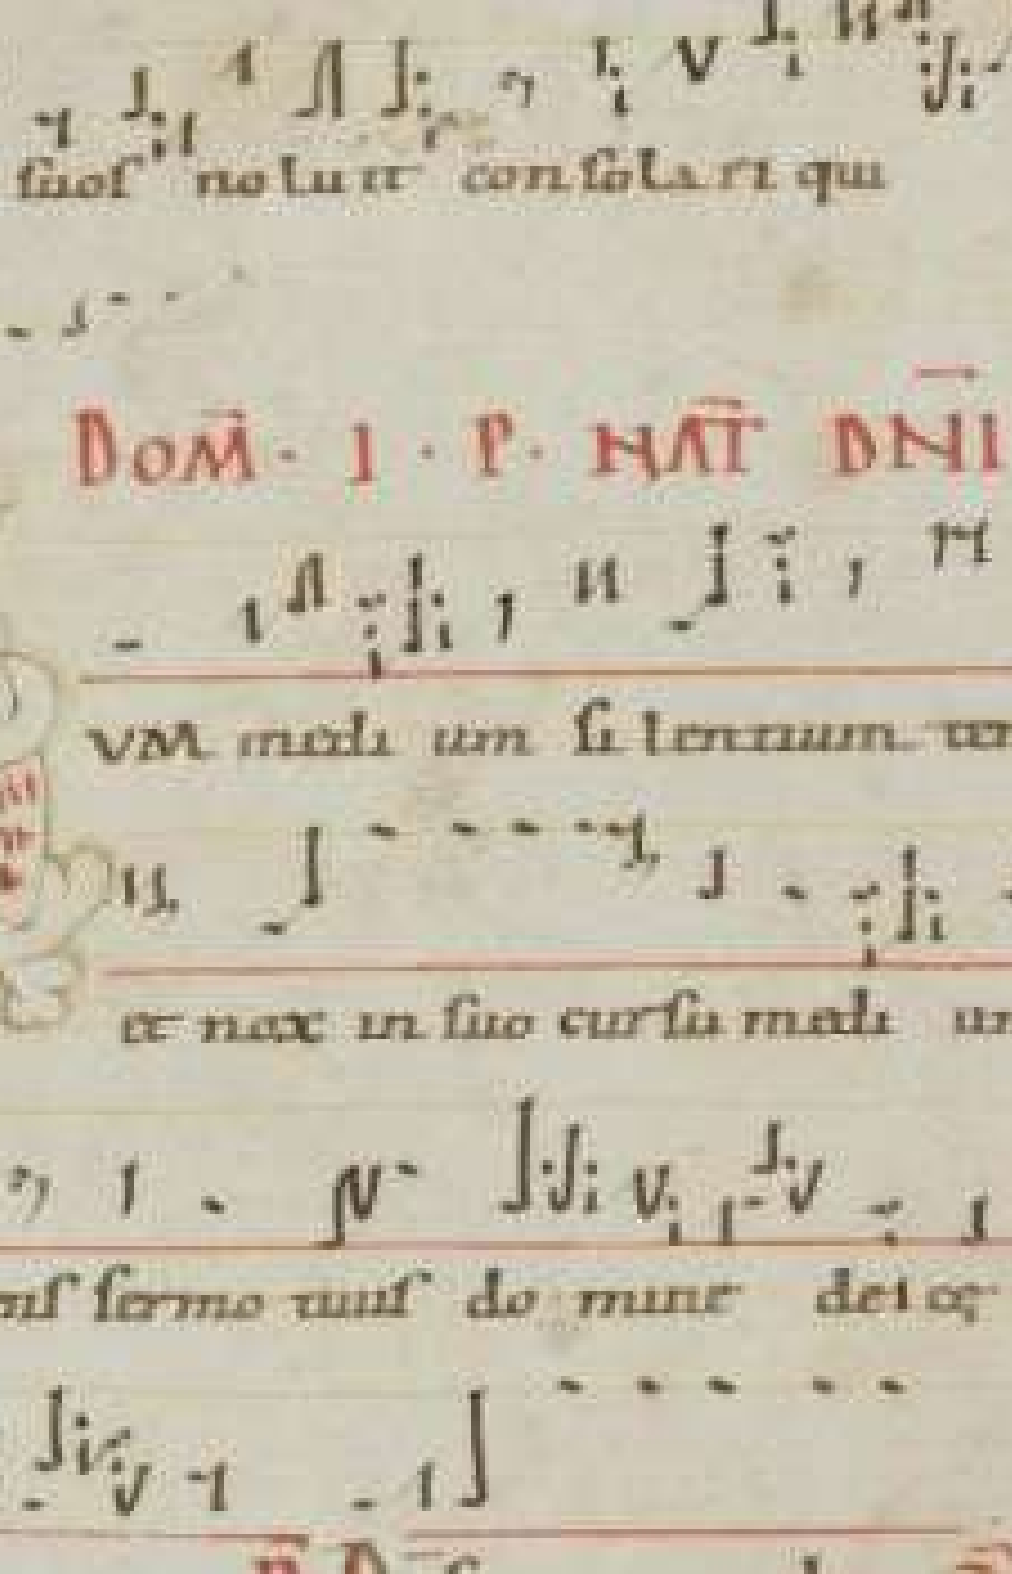 suos noluit consolari qui
DOM̄ · I · P · NAT̄ DN̄I
VM medi um si lentium ten
et nox in suo cursu medi um
nis sermo tuus do mine de